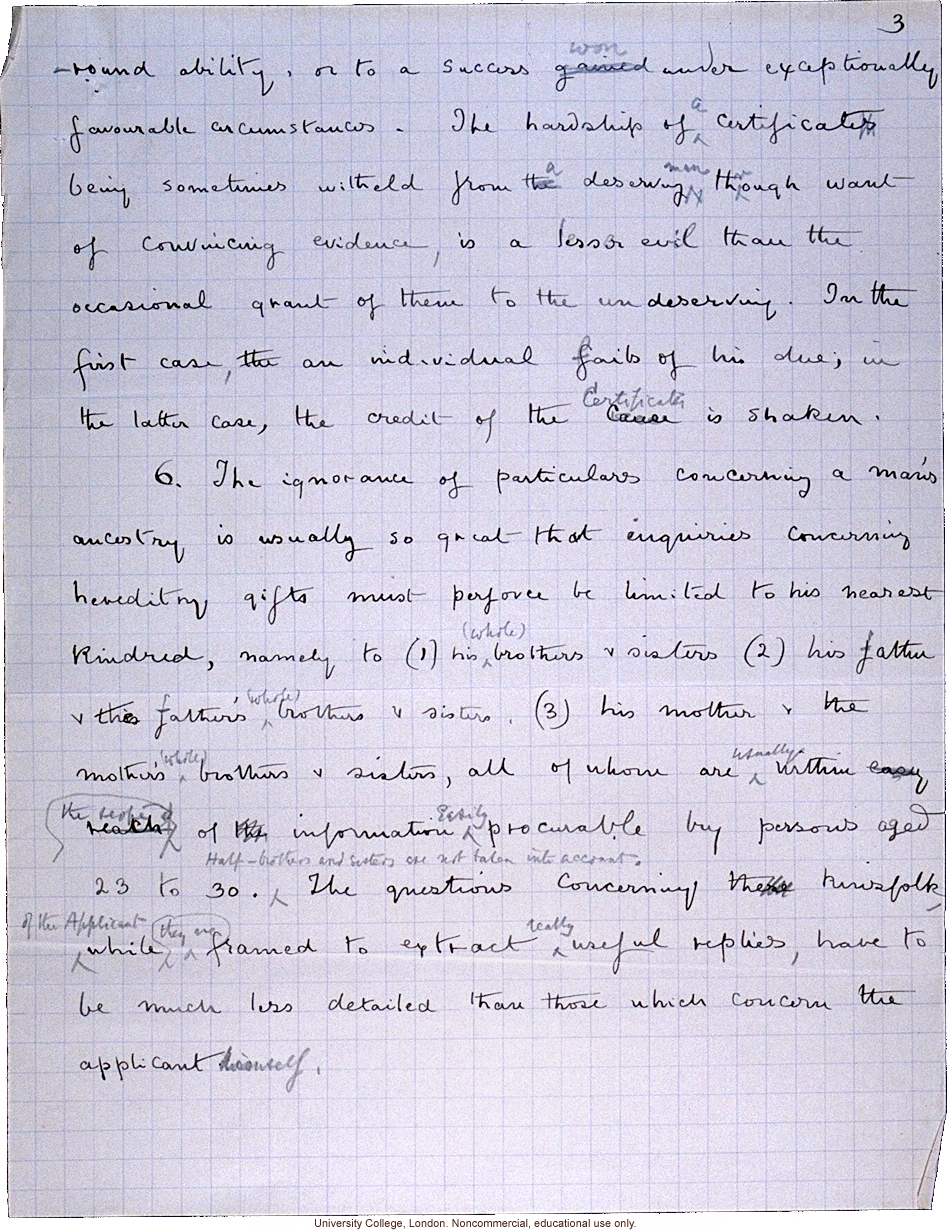 3
won
-round ability, or to a success gained under exceptionally
a
favourable circumstances. The hardship of certificates
a man
being sometimes witheld from the deserving though want
of convincing evidence, is a lesser evil than the
occasional grant of them to the undeserving. In the
first case, the an individual fails of his due; in
Certificate
the latter case, the credit of the Cause is shaken.
6. The ignorance of particulars concerning a man's
ancestry is usually so great that enquiries concerning
hereditry gifts must perforce be limited to his nearest
(whole)
Kindred, namely to (1) his brothers & sisters (2) his father
(whole)
& the father's brothers & sisters. (3) his mother & the
(whole) usually
mother's brothers & sisters, all of whom are within easy
the scope of Easily
reach of information procurable by persons aged
Half-brothers and sisters are not taken into account.
23 to 30. The questions concerning these kinsfolk,
of the Applicant they are really
while framed to extract useful replies, have to
be much less detailed than those which concern the
applicant himself.
University College, London. Noncommercial, educational use only.